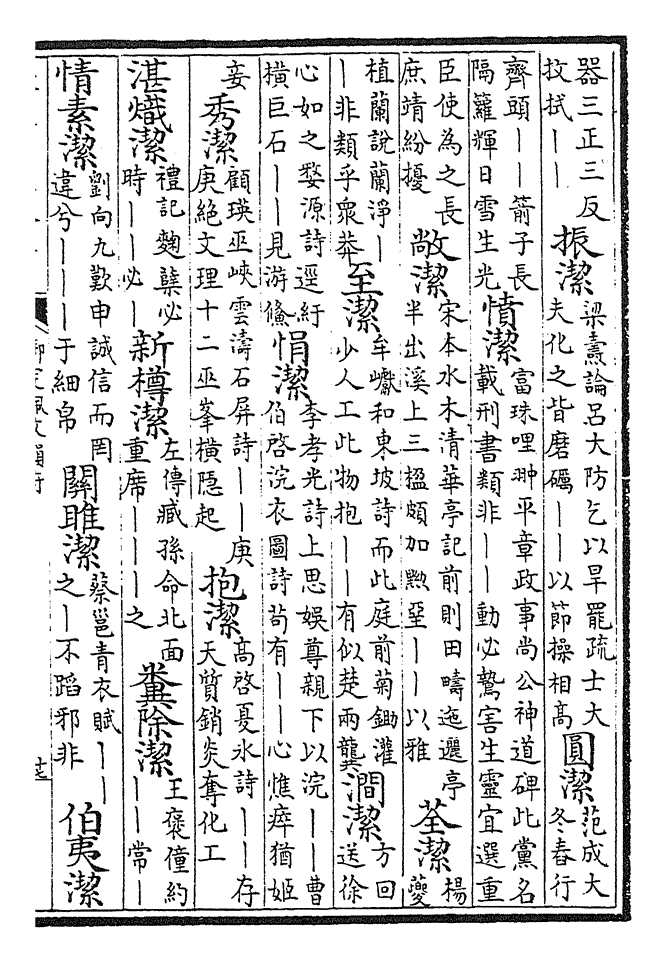 器三正三反抆拭——振潔梁燾論呂大防乞以旱罷疏士大夫化之皆磨礪——以節操相高圓潔范成大冬春行
齊頭——箭子長隔籮輝日雪生光憤潔富珠哩翀平章政事尚公神道碑此黨名載刑書類非——動必驁害生靈宜選重
臣使為之長庶靖紛擾敞潔宋本水木清華亭記前則田疇迤邐亭半出溪上三楹頗加黝堊——以雅荃潔楊夔
植蘭說蘭淨——非類乎衆莽至潔牟巘和東坡詩而此庭前菊鋤灌少人工此物抱——有似楚兩龔澗潔方回送徐
心如之婺源詩逕紆橫巨石——見游鯈悁潔李孝光詩上思娛尊親下以浣——曹伯啓浣衣圖詩苟有——心憔瘁猶姬
妾秀潔顧瑛巫峽雲濤石屏詩——庚庚絕文理十二巫峯橫隱起抱潔高啓夏氷詩——存天質銷炎奪化工
湛熾潔禮記麴糵必時——必—新樽潔左傳臧孫命北面重席———之糞除潔王褒僮約——常—
情素潔劉向九歎申誠信而罔違兮———于細帛關雎潔蔡邕青衣賦——之—不蹈邪非伯夷潔